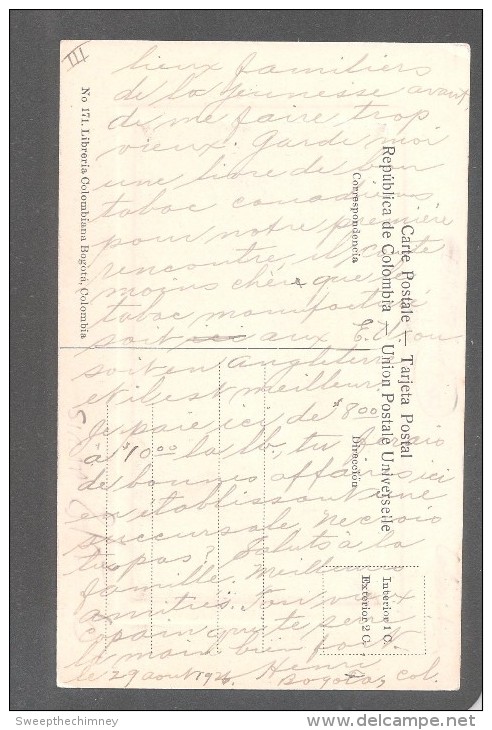 III
lieux familiers
de la jeunesse avant
de me faire trop
vieux. Garde moi
une livre de bon
tabac canadiens
pour notre première
rencontre, il coute
moins cher que le
tabac manufacturé
soit ici aux E.U. ou
soit en Angleterre
et il est meilleur.
Je paie ici de $8.00
à $10.00 la lb. tu ferais
de bonnes affaires ici
en établissant une
succursale. Ne crois
tu pas? Saluts à la
famille. Meilleures
amitiés. Ton vieux
copain qui te serre
la main bien fort.
Henri
le 29 aout 1926. Bogota, Col.
Carte Postale — Tarjeta Postal
República de Colombia — Union Postale Universelle
Correspondencia
Dirección
Interior 1 C.
Exterior 2 C.
No 171. Librería Colombiana Bogotá, Colombia
Sweepthechimney